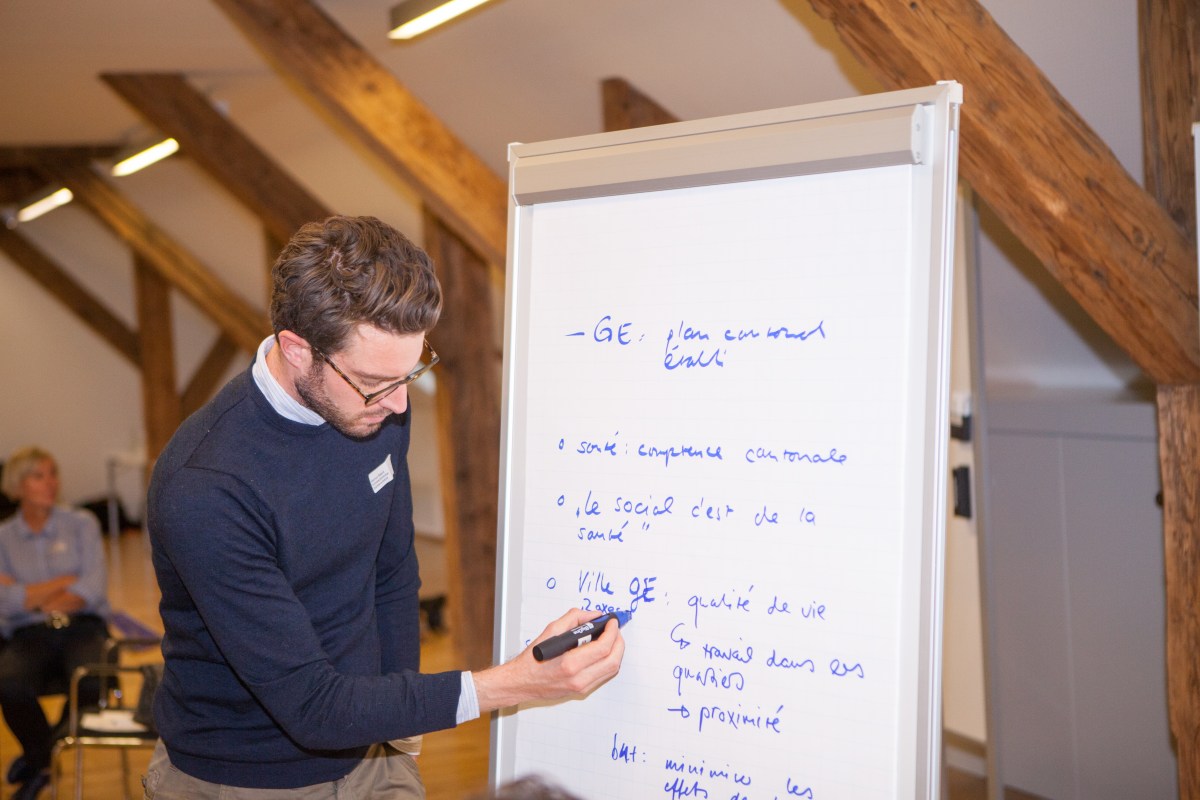 – GE : plan cantonal
établi
o santé : compétence cantonale
o „le social c'est de la
santé"
o Ville GE : qualité de vie
2 axes
↳ travail dans les
quartiers
→ proximité
but : minimiser les
effets de